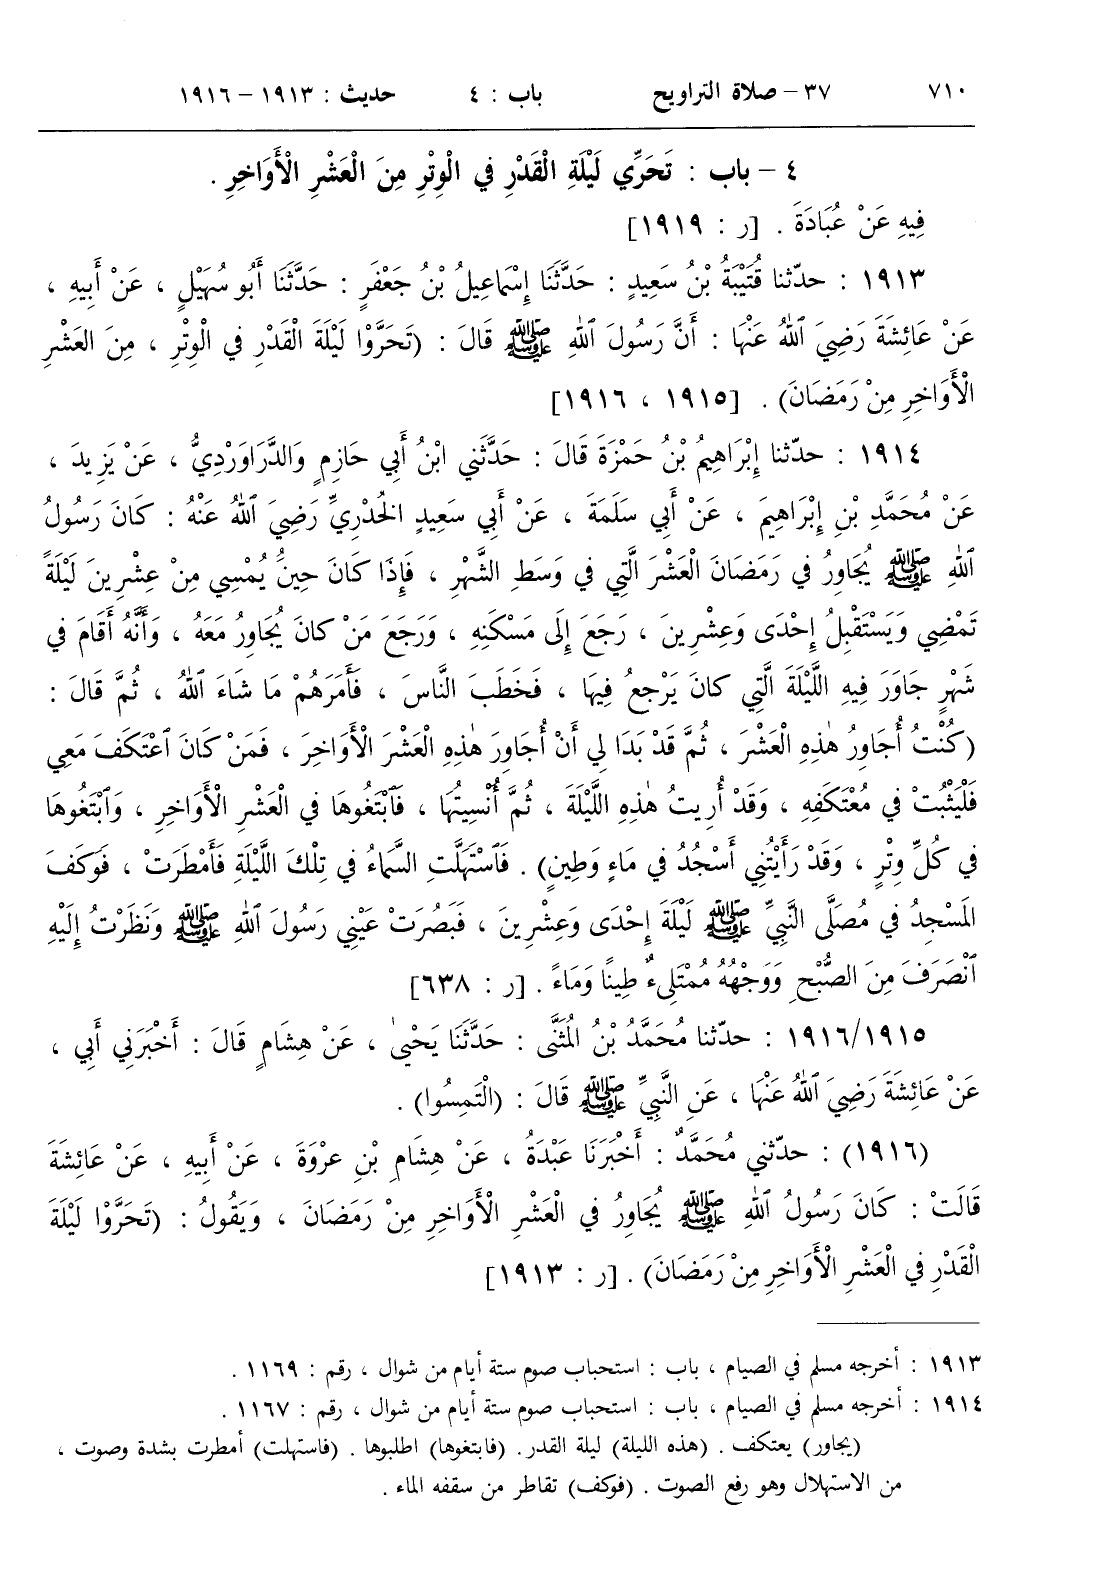 ٧١٠ ٣٧ – صلاة التراويح باب : ٤ حديث : ١٩١٣ – ١٩١٦
٤ – باب : تَحَرِّي لَيْلَةِ الْقَدْرِ فِي الْوِتْرِ مِنَ الْعَشْرِ الْأَوَاخِرِ .
فِيهِ عَنْ عُبَادَةَ . [ر : ١٩١٩]
١٩١٣ : حدّثنا قُتَيْبَةُ بْنُ سَعِيدٍ : حَدَّثَنَا إِسْمَاعِيلُ بْنُ جَعْفَرٍ : حَدَّثَنَا أَبُو سُهَيْلٍ ، عَنْ أَبِيهِ ،
عَنْ عَائِشَةَ رَضِيَ ٱللهُ عَنْهَا : أَنَّ رَسُولَ ٱللهِ ﷺ قَالَ : (تَحَرَّوْا لَيْلَةَ الْقَدْرِ فِي الْوِتْرِ ، مِنَ الْعَشْرِ
الْأَوَاخِرِ مِنْ رَمَضَانَ) . [١٩١٥ ، ١٩١٦]
١٩١٤ : حدّثنا إِبْرَاهِيمُ بْنُ حَمْزَةَ قَالَ : حَدَّثَنِي ابْنُ أَبِي حَازِمٍ وَالدَّرَاوَرْدِيُّ ، عَنْ يَزِيدَ ،
عَنْ مُحَمَّدِ بْنِ إِبْرَاهِيمَ ، عَنْ أَبِي سَلَمَةَ ، عَنْ أَبِي سَعِيدٍ الخُدْرِيِّ رَضِيَ ٱللهُ عَنْهُ : كَانَ رَسُولُ
ٱللهِ ﷺ يُجَاوِرُ فِي رَمَضَانَ الْعَشْرَ الَّتِي فِي وَسَطِ الشَّهْرِ ، فَإِذَا كَانَ حِينَ يُمْسِي مِنْ عِشْرِينَ لَيْلَةً
تَمْضِي وَيَسْتَقْبِلُ إِحْدَى وَعِشْرِينَ ، رَجَعَ إِلَى مَسْكَنِهِ ، وَرَجَعَ مَنْ كَانَ يُجَاوِرُ مَعَهُ ، وَأَنَّهُ أَقَامَ فِي
شَهْرٍ جَاوَرَ فِيهِ اللَّيْلَةَ الَّتِي كَانَ يَرْجِعُ فِيهَا ، فَخَطَبَ النَّاسَ ، فَأَمَرَهُمْ مَا شَاءَ ٱللهُ ، ثُمَّ قَالَ :
(كُنْتُ أُجَاوِرُ هٰذِهِ الْعَشْرَ ، ثُمَّ قَدْ بَدَا لِي أَنْ أُجَاوِرَ هٰذِهِ الْعَشْرَ الْأَوَاخِرَ ، فَمَنْ كَانَ ٱعْتَكَفَ مَعِي
فَلْيَثْبُتْ فِي مُعْتَكَفِهِ ، وَقَدْ أُرِيتُ هٰذِهِ اللَّيْلَةَ ، ثُمَّ أُنْسِيتُهَا ، فَٱبْتَغُوهَا فِي الْعَشْرِ الْأَوَاخِرِ ، وَٱبْتَغُوهَا
فِي كُلِّ وِتْرٍ ، وَقَدْ رَأَيْتُنِي أَسْجُدُ فِي مَاءٍ وَطِينٍ) . فَٱسْتَهَلَّتِ السَّمَاءُ فِي تِلْكَ اللَّيْلَةِ فَأَمْطَرَتْ ، فَوَكَفَ
المَسْجِدُ فِي مُصَلَّى النَّبِيِّ ﷺ لَيْلَةَ إِحْدَى وَعِشْرِينَ ، فَبَصُرَتْ عَيْنِي رَسُولَ ٱللهِ ﷺ وَنَظَرْتُ إِلَيْهِ
ٱنْصَرَفَ مِنَ الصُّبْحِ وَوَجْهُهُ مُمْتَلِئٌ طِينًا وَمَاءً . [ر : ٦٣٨]
١٩١٦/١٩١٥ : حدّثنا مُحَمَّدُ بْنُ المُثَنَّى : حَدَّثَنَا يَحْيىٰ ، عَنْ هِشَامٍ قَالَ : أَخْبَرَنِي أَبِي ،
عَنْ عَائِشَةَ رَضِيَ ٱللهُ عَنْهَا ، عَنِ النَّبِيِّ ﷺ قَالَ : (الْتَمِسُوا) .
(١٩١٦) : حدّثني مُحَمَّدٌ : أَخْبَرَنَا عَبْدَةُ ، عَنْ هِشَامِ بْنِ عُرْوَةَ ، عَنْ أَبِيهِ ، عَنْ عَائِشَةَ
قَالَتْ : كَانَ رَسُولُ ٱللهِ ﷺ يُجَاوِرُ فِي الْعَشْرِ الْأَوَاخِرِ مِنْ رَمَضَانَ ، وَيَقُولُ : (تَحَرَّوْا لَيْلَةَ
الْقَدْرِ فِي الْعَشْرِ الْأَوَاخِرِ مِنْ رَمَضَانَ) . [ر : ١٩١٣]
١٩١٣ : أخرجه مسلم في الصيام ، باب : استحباب صوم ستة أيام من شوال ، رقم : ١١٦٩ .
١٩١٤ : أخرجه مسلم في الصيام ، باب : استحباب صوم ستة أيام من شوال ، رقم : ١١٦٧ .
(يجاور) يعتكف . (هذه الليلة) ليلة القدر . (فابتغوها) اطلبوها . (فاستهلت) أمطرت بشدة وصوت ،
من الاستهلال وهو رفع الصوت . (فوكف) تقاطر من سقفه الماء .